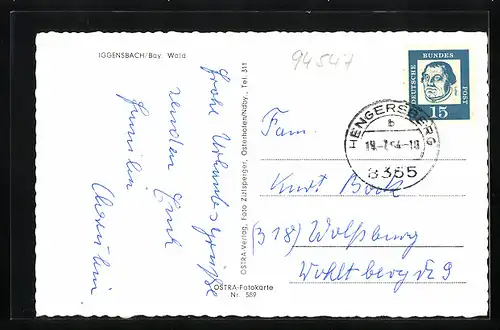 IGGENSBACH/Bay. Wald
94547
frohe Urlaubsgrüße
senden Euch
Familie
OSTRA-Verlag, Foto Zizlsperger, Osterhofen/Ndby., Tel. 311
OSTRA-Fotokarte
Nr. 589
DEUTSCHE BUNDES POST
15
HENGERSBERG
b
19.-7.64-18
8355
Fam.
Kurt Bock
(318) Wolfsburg
Wohltberg 9